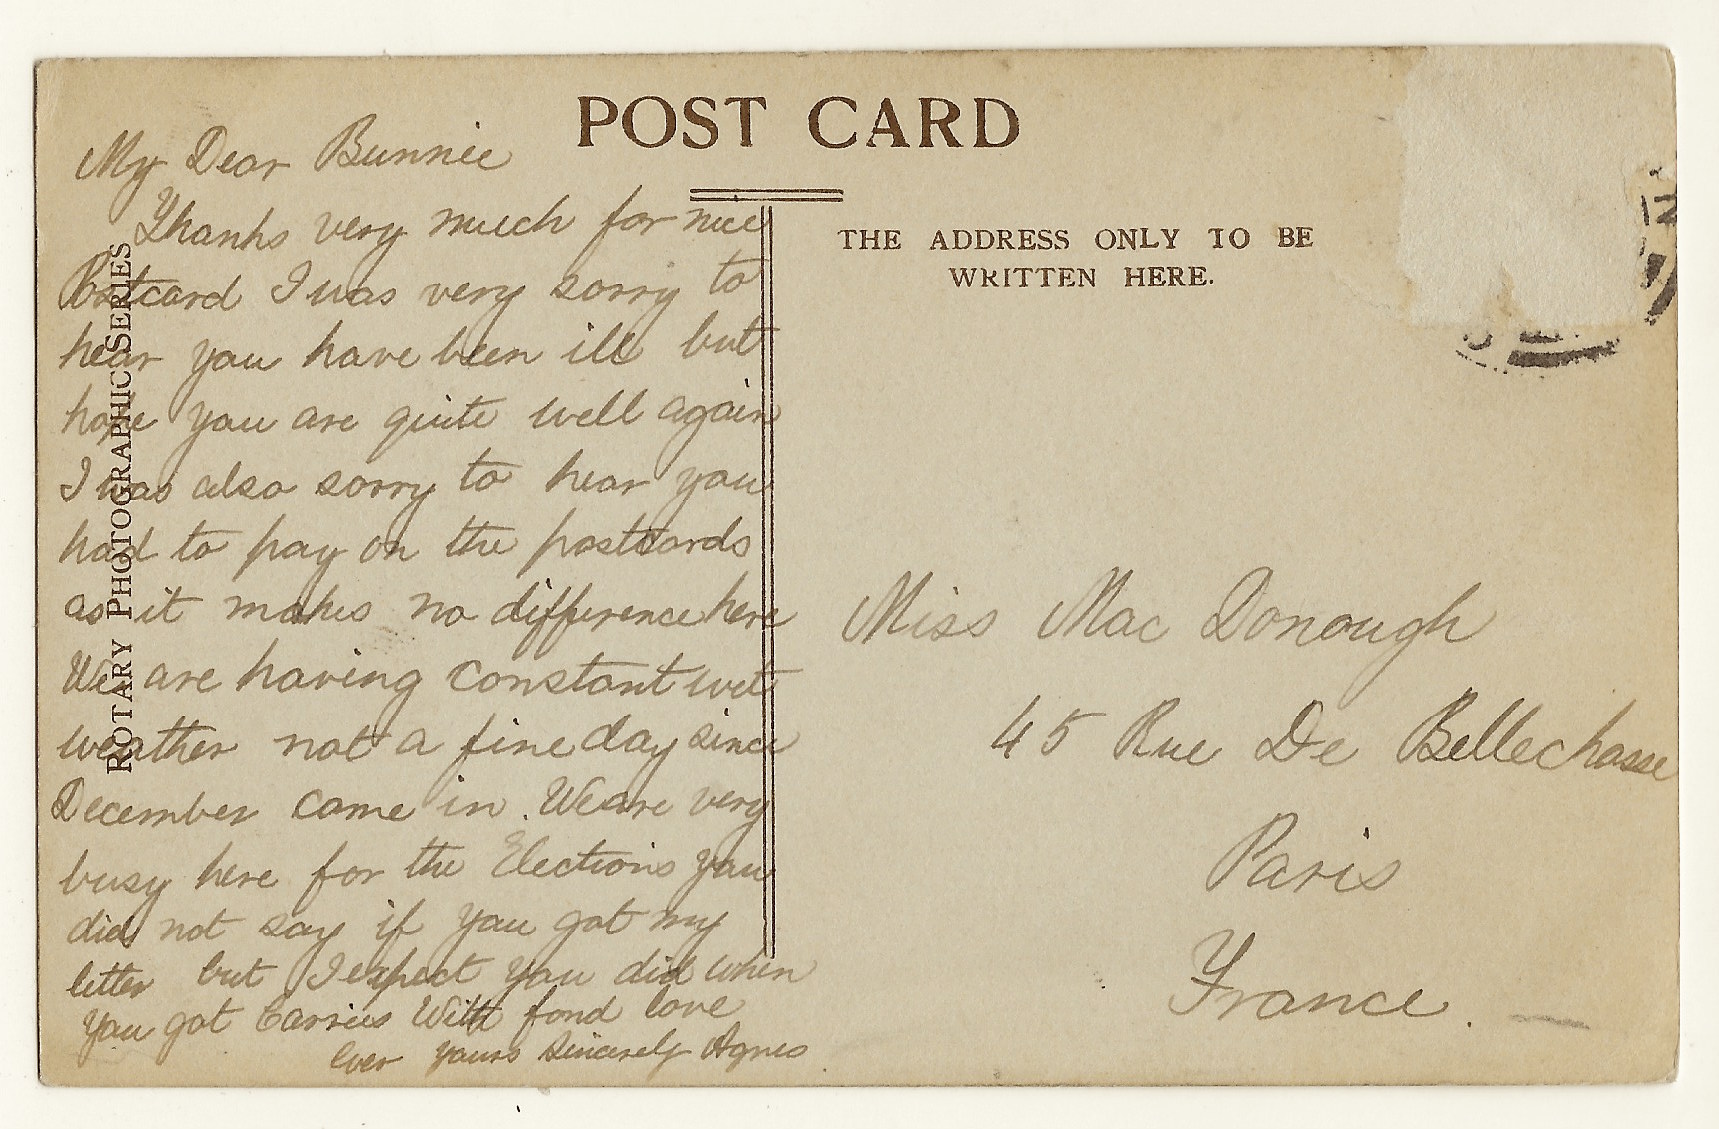 POST CARD
THE ADDRESS ONLY TO BE
WRITTEN HERE.
ROTARY PHOTOGRAPHIC SERIES
My Dear Bunnie
Thanks very much for nice
Postcard I was very sorry to
hear you have been ill but
hope you are quite well again
I was also sorry to hear you
had to pay on the postcards
as it makes no difference here
We are having constant wet
weather not a fine day since
December came in. We are very
busy here for the Elections you
did not say if you got my
letter but I expect you did when
you got Carries With fond love
Ever yours Sincerely Agnes
Miss Mac Donough
45 Rue De Bellechasse
Paris
France.